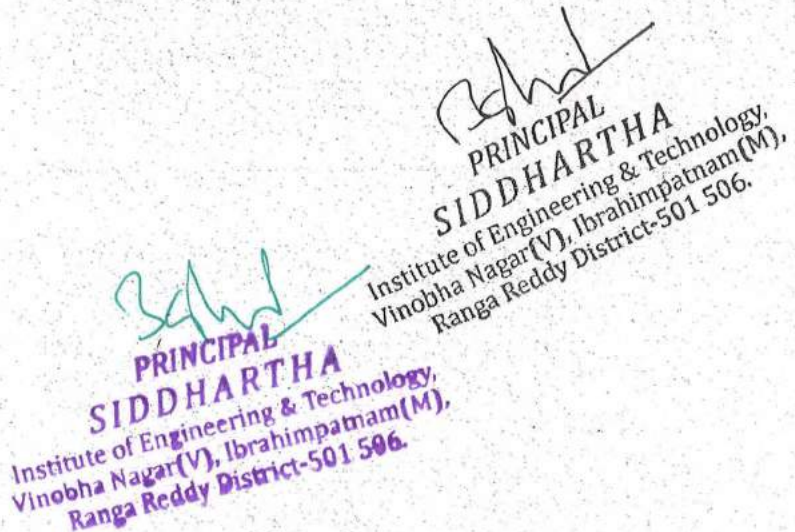 PRINCIPAL
SIDDHARTHA
Institute of Engineering & Technology,
Vinobha Nagar(V), Ibrahimpatnam(M),
Ranga Reddy District-501 506.
PRINCIPAL
SIDDHARTHA
Institute of Engineering & Technology,
Vinobha Nagar(V), Ibrahimpatnam(M),
Ranga Reddy District-501 506.